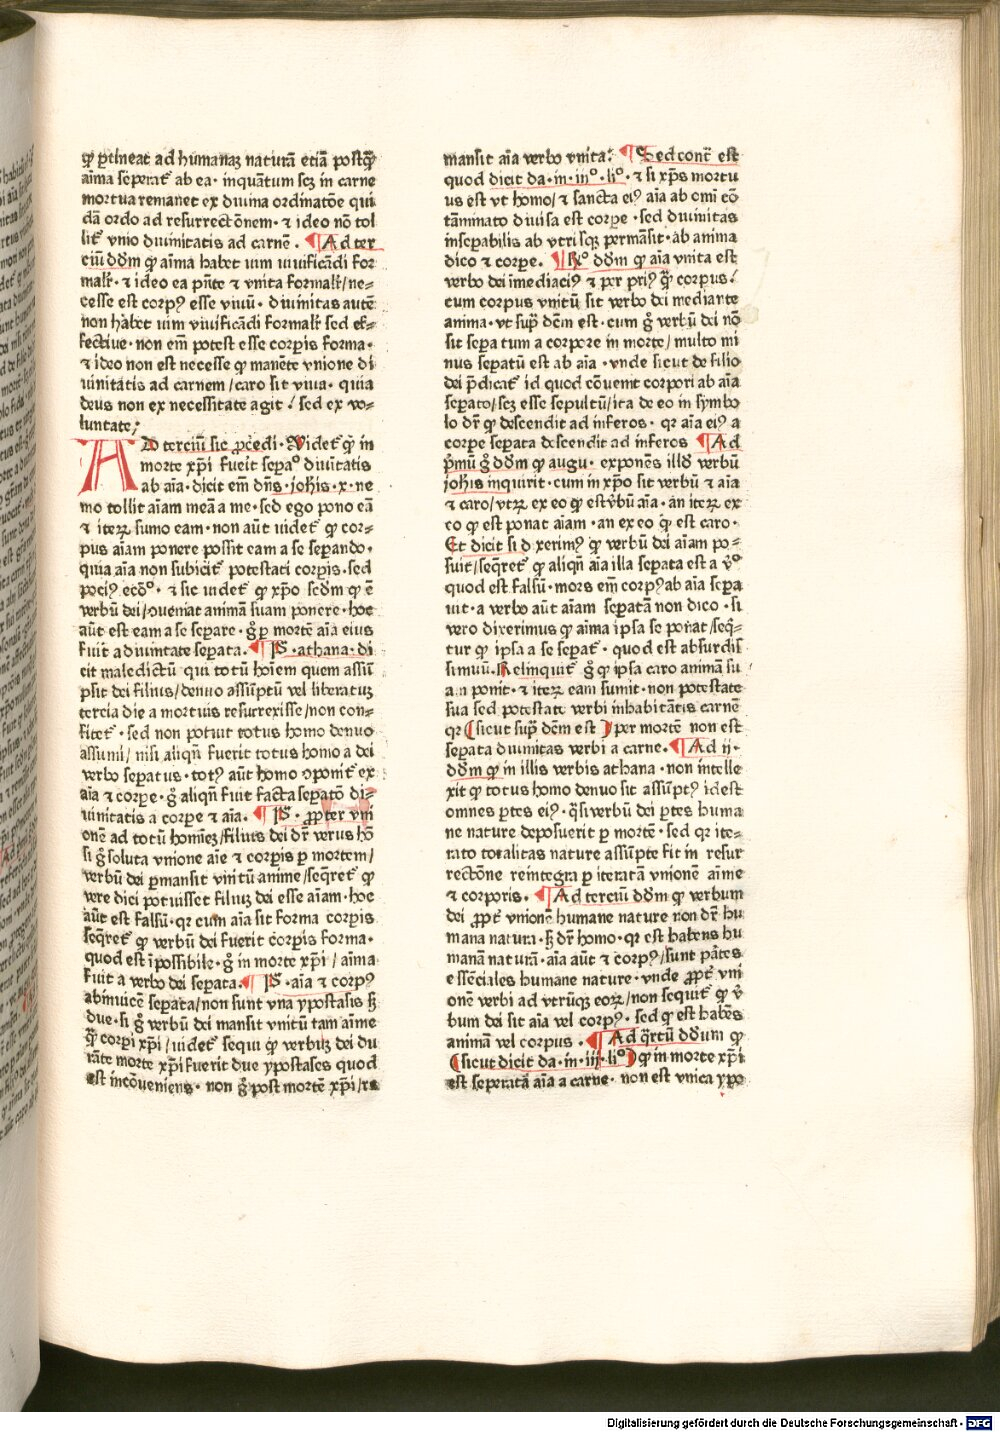 ꝙ ꝑtineat ad humanaꝫ naturā etiā postꝙ̄
aīma seꝑat᷑ ab ea · inquātum scꝫ in carne
mortua remanet ex diuina ordinatōe qui
dā ordo ad resurrectōnem · ⁊ ideo nō tol
lit᷑ vnio diuinitatis ad carnē · ¶ Ad ter
ciū dōm ꝙ aīma habet uim uiuificādi for
mal᷑r · ⁊ ideo ea pn̄te ⁊ vnita formal᷑r / ne⸗
cesse est corpꝰ esse viuū · diuinitas autē
non habet uim viuificādi formal᷑r sed ef⸗
fectiue · non em̄ potest esse corꝑis forma ·
⁊ ideo non est necesse ꝙ manēte vnione di
uinitatis ad carnem / caro sit viua · quia
deus non ex necessitate agit / sed ex vo⸗
luntate ;
AD terciū sic ꝓcedi · Videt᷑ ꝙ in
morte xp̄i fuerit seꝑaº diuītatis
ab aīa · dicit em̄ dn̄s · joħis · x · ne
mo tollit aīam meā a me · sed ego pono eā
⁊ iteꝝ sumo eam · non aūt uidet᷑ ꝙ cor⸗
pus aīam ponere possit eam a se seꝑando ·
quia aīa non subicit᷑ potestati corꝑis · sed
pociꝰ ecōº · ⁊ sic uidet᷑ ꝙ xp̄o scd̄m ꝙ ē
verbū dei / ꝯueniat animā suam ponere · hoc
aūt est eam a se seꝑare · g̊ ꝑ mortē aīa eius
fuit a diuinitate seꝑata · ¶ P̄S · athana · di
cit maledictū qui totū hoīem quem assū
psit dei filius / denuo assūptū vel liberatuꝫ
tercia die a mortuis resurrexisse / non con⸗
fitet᷑ · sed non potuit totus homo denuo
assumi / nisi aliqn̄ fuerit totus homo a dei
verbo seꝑatus · totꝰ aūt homo ꝯponit᷑ ex
aīa ⁊ corꝑe · g̊ aliqn̄ fuit facta seꝑatō di⸗
uinitatis a corꝑe ⁊ aīa · ¶ P̄S · ꝓpter vni
onē ad totū homieꝫ / filius dei dr̄ verus hō
si g̊ soluta vnione aīe ⁊ corꝑis ꝑ mortem /
verbū dei ꝑmansit vnitū anime / seq̄ret᷑ ꝙ
vere dici potuisset filiuꝫ dei esse aīam · hoc
aūt est falsū · qr cum aīa sit forma corꝑis
seq̄ret᷑ ꝙ verbū dei fuerit corꝑis forma ·
quod est īpossibile · g̊ in morte xp̄i / aīma
fuit a verbo dei seꝑata · ¶ P̄S · aīa ⁊ corpꝰ
abinuicē seꝑata / non sunt vna ypostasis ẜꝫ
due · si g̊ verbū dei mansit vnitū tam aīme
ꝙ̄ corꝑi xp̄i / uidet᷑ sequi ꝙ verbuꝫ dei du
rāte morte xp̄i fuerit due ypostases quod
est incōueniens · non g̊ post mortē xp̄i / re
mansit aīa verbo vnita · ¶ Sed cont᷑ est
quod dicit da · in · iiiº · liº · ⁊ si xp̄s mortu
us est vt homo / ⁊ sancta eiꝰ aīa ab omī cō
tāminato diuisa est corꝑe · sed diuinitas
inseꝑabilis ab vtrisqꝫ permāsit · ab anima
dico ⁊ corꝑe · ¶ Rº dōm ꝙ aīa vnita est
verbo dei īmediaciꝰ ⁊ per priꝰ ꝙ̄ corpus /
cum corpus vnitū sit verbo dei mediante
anima · vt supᷣ dc̄m est · cum g̊ verbū dei nō
sit seꝑatum a corpore in morte / multo mi
nus seꝑatū est ab aīa · vnde sicut de filio
dei p̄dicat᷑ id quod cōuenit corpori ab aīa
seꝑato / scꝫ esse sepultū / ita de eo in symbo
lo dr̄ ꝙ descendit ad inferos · qr aīa eiꝰ a
corꝑe seꝑata descendit ad inferos ¶ Ad
p̄mū g̊ dōm ꝙ augu · exponēs illd̄ verbū
joħis inquirit · cum in xp̄o sit verbū ⁊ aīa
⁊ caro / vtꝝ ex eo ꝙ est v̄bū aīa · an iteꝝ ex
eo ꝙ est ponat aīam · an ex eo ꝙ est caro ·
Et dicit si dixerimꝰ ꝙ verbū dei aīam po⸗
suit / seq̄ret᷑ ꝙ aliqn̄ aīa illa seꝑata est a v̄º
quod est falsū · mors em̄ corpꝰ ab aīa seꝑa
uit · a verbo aūt aīam seꝑatā non dico · si
vero dixerimus ꝙ aīma ipsa se ponat / seq̄⸗
tur ꝙ ipsa a se seꝑat᷑ · quod est absurdis
simuū · Relinquit᷑ g̊ ꝙ ipsa caro animā su
am ponit · ⁊ iteꝝ eam sumit · non potestate
sua sed potestate verbi inhabitātis carnē
qr (sicut supᷣ dc̄m est) per mortē non est
seꝑata diuinitas verbi a carne · ¶ Ad ij ·
dōm ꝙ in illis verbis athana · non intelle
xit ꝙ totus homo denuo sit assūptꝰ idest
omnes ꝑtes eiꝰ · q̄si verbū dei ꝑtes huma
ne nature deposuerit ꝑ mortē · sed qr ite⸗
rato totalitas nature assūpte fit in resur
rectōne reintegra ꝑ iteratā vnionē aīme
⁊ corporis · ¶ Ad terciū dōm ꝙ verbum
dei ꝓpt᷑ vnionē humane nature non dr̄ hu
mana natura · ẜꝫ dr̄ homo · qr est habens hu
manā naturā · aīa aūt ⁊ corpꝰ / sunt ꝑtes
essēciales humane nature · vnde ꝓpt᷑ vni
onē verbi ad vtrūqꝫ eoꝝ / non sequit᷑ ꝙ v̄
bum dei sit aīa vel corpꝰ · sed ꝙ est habēs
animā vel corpus · ¶ Ad q̄rtū dōum ꝙ
(sicut dicit da · in · iij · liº) ꝙ in morte xp̄i
est seperata aīa a carne · non est vnica ypo
Digitalisierung gefördert durch die Deutsche Forschungsgemeinschaft · DFG